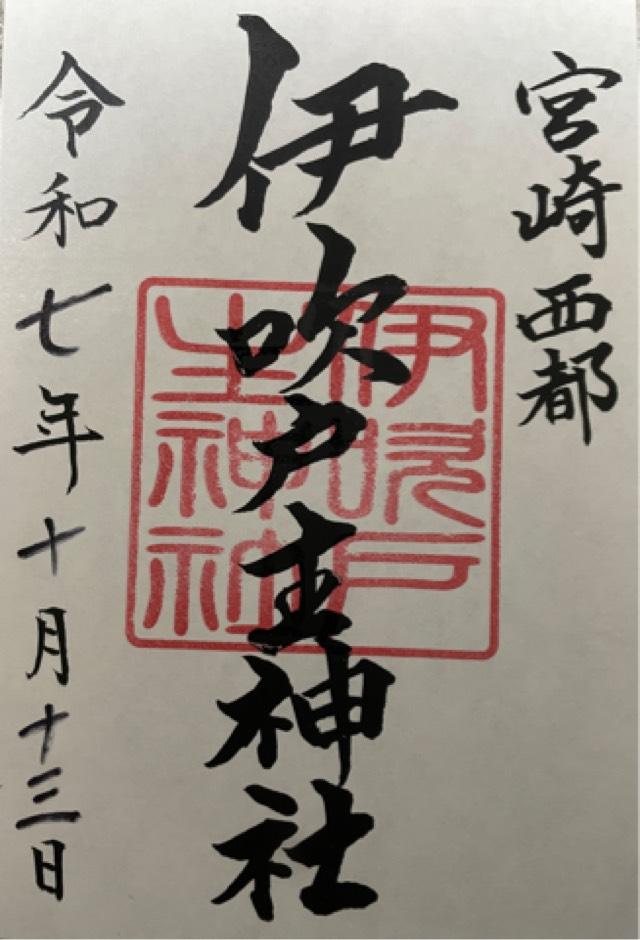 宮崎西都
伊吹戸主神社
令和七年十月十三日
伊吹戸
主神社